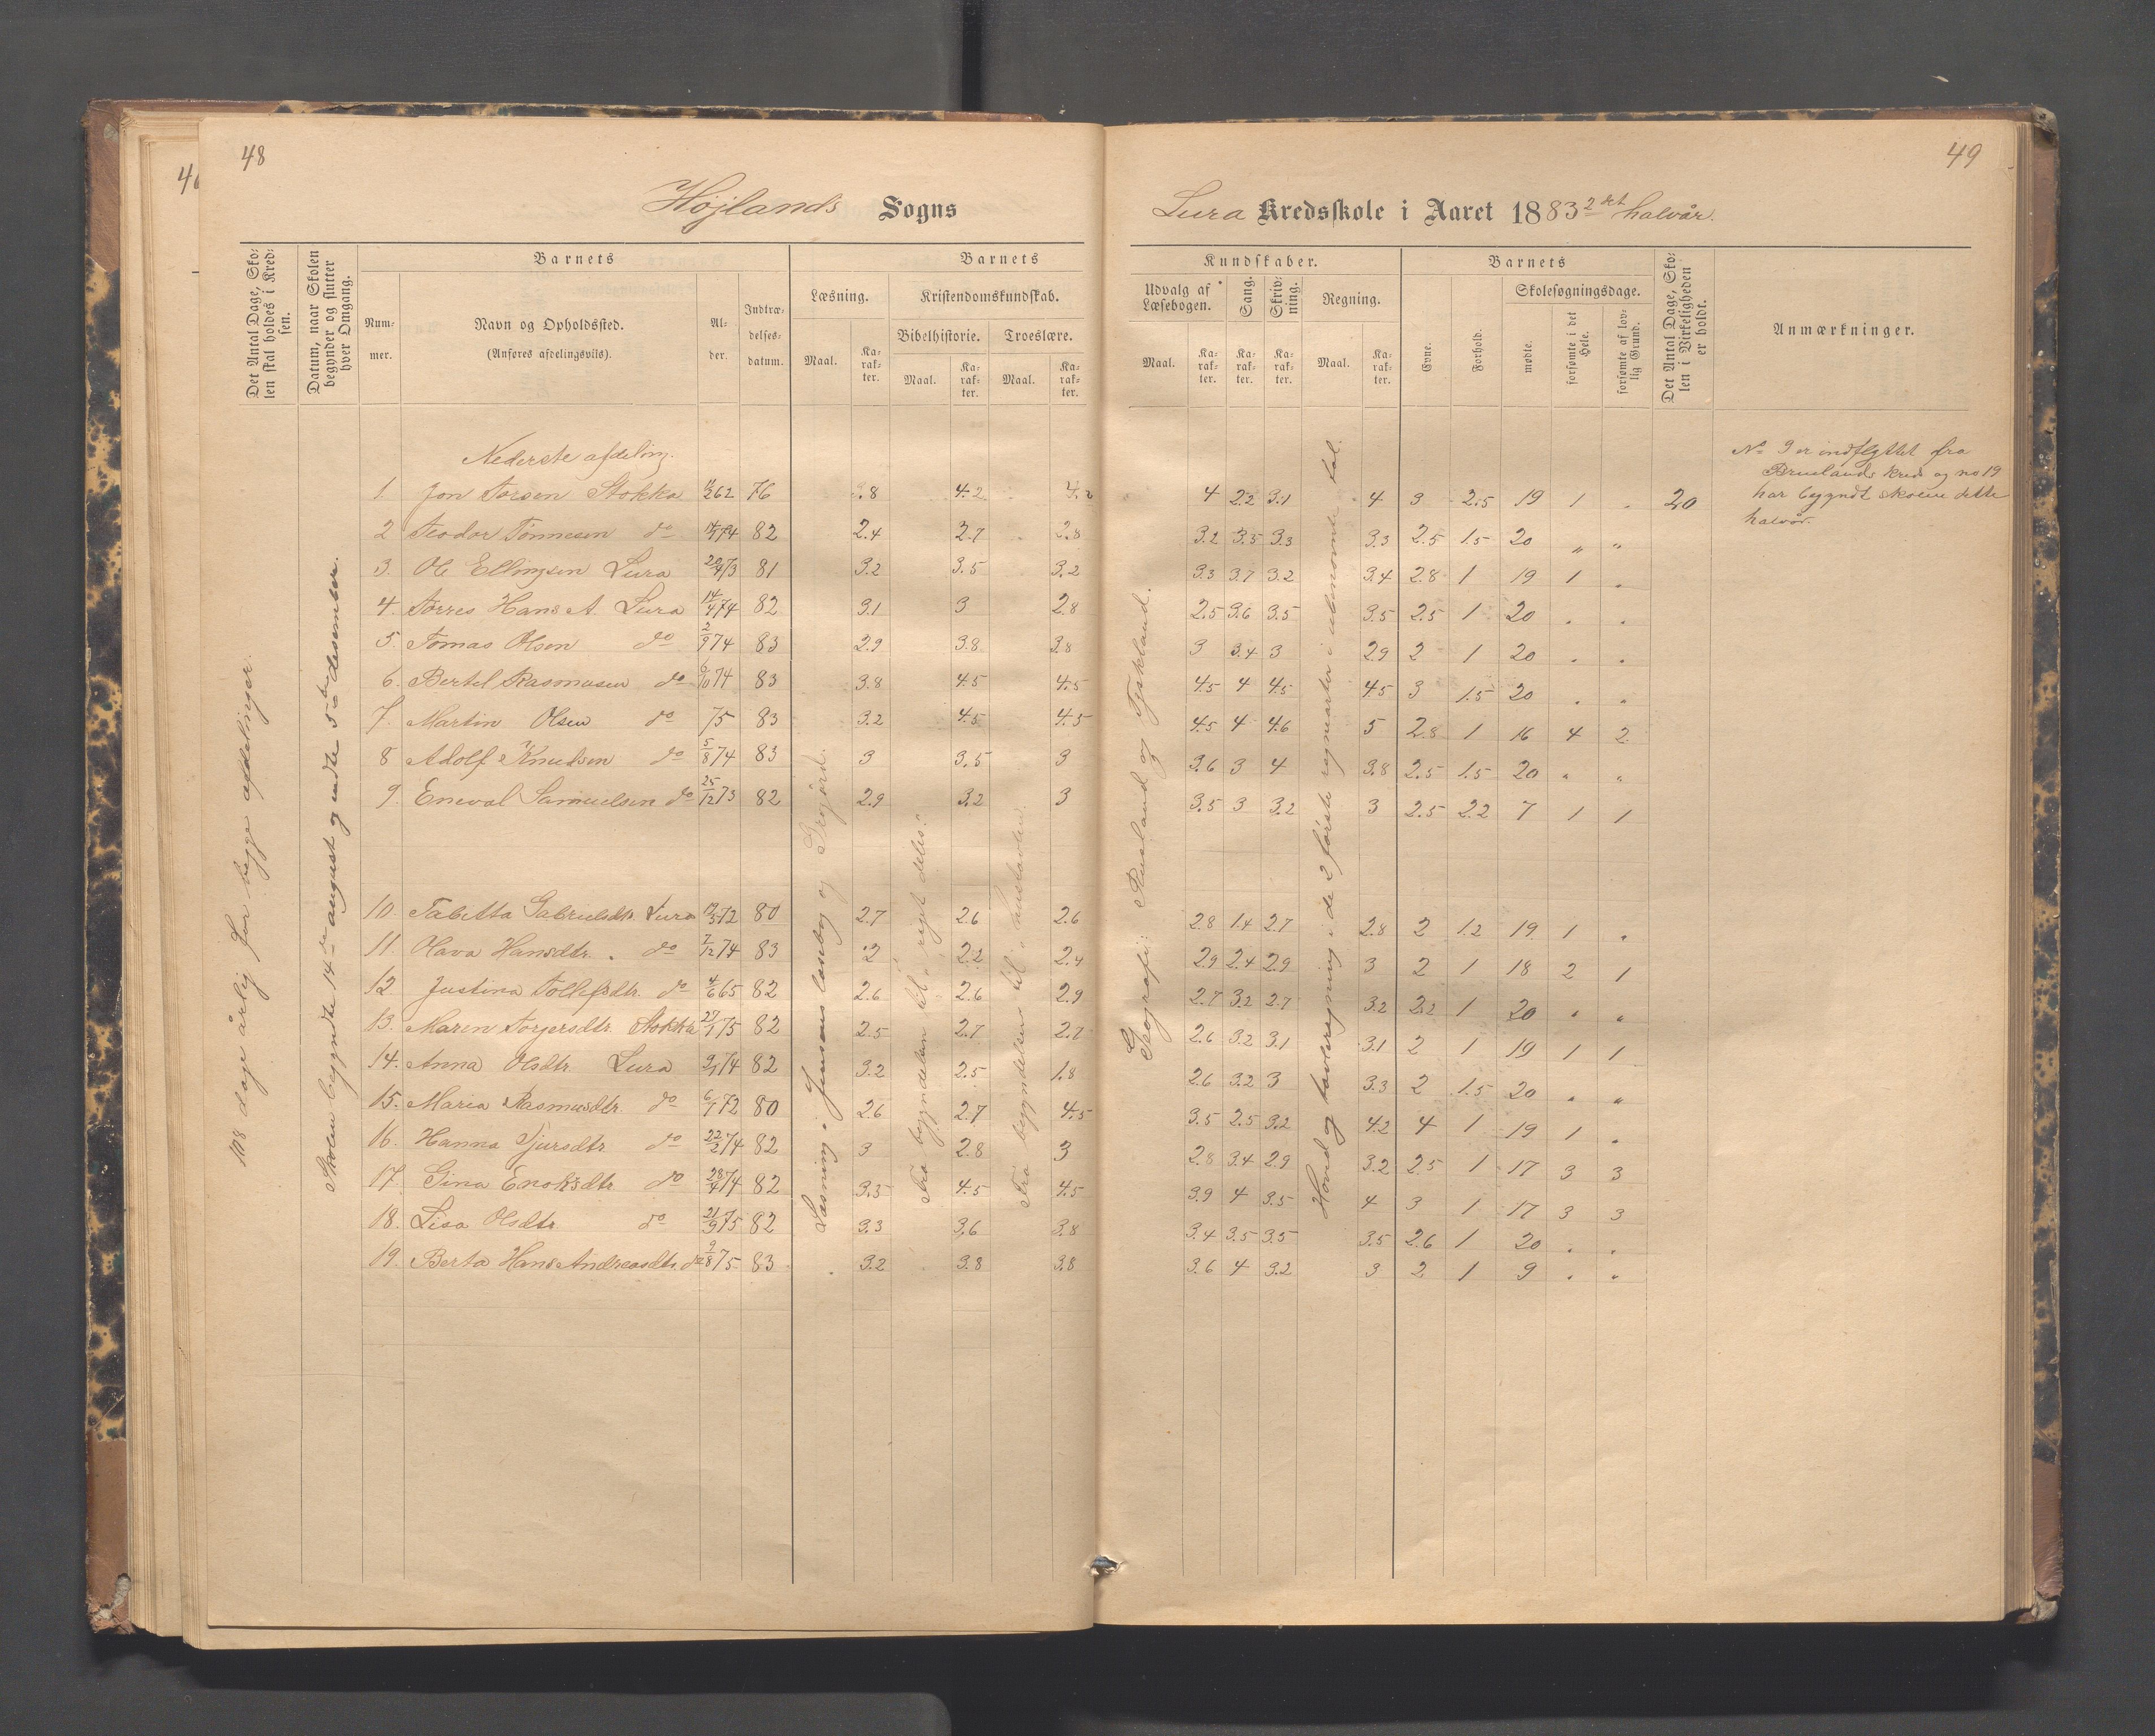 48
Højlands Sogns
Det Antal Dage, Sko-
len skal holdes i Kred-
sen.
Datum, naar Skolen
begynder og slutter
hver Omgang.
Barnets
Num-
mer.
Navn og Opholdssted.
(Anføres afdelingsvis).
Al-
der.
Indtræ-
delses-
datum.
Barnets
Læsning.
Kristendomskundskab.
Bibelhistorie.
Troeslære.
Maal.
Ka-
rak-
ter.
Maal.
Ka-
rak-
ter.
Maal.
Ka-
rak-
ter.
108 dage årlig for begge afdelinger.
Skolen begyndte 14de august og endte 5te desember.
Læsning i Jensens læsebog og
Fra begyndelsen til
Fra begyndelsen til
Nederste afdeling.
1. Jon Torsen Stokka 62 76 3.8 4.2 4.2
2 Teodor Tønnesen do 74 82 2.4 2.7 2.8
3. Ole Ellingsen Lura 20/4 73 81 3.2 3.5 3.2
4. Torres Hans A. Lura 14/4 74 82 3.1 3 2.8
5. Tomas Olsen do 2/9 74 83 2.9 3.8 3.8
6. Bertel Rasmusen do 6/10 74 83 3.8 4.5 4.5
7. Martin Olsen do 75 83 3.2 4.5 4.5
8 Adolf Knudsen do 5/8 74 83 3 3.5 3
9. Eneval Samuelsen do 25/12 73 82 2.9 3.2 3
10. Tabitta Gabrielsdtr. Lura 72 80 2.7 2.6 2.6
11. Olava Hansdtr. do 7/12 74 83 2 2.2 2.4
12 Justina Tollefsdtr. do 4/6 65 82 2.6 2.6 2.9
13. Maren Torgersdtr. Stokka 27/1 75 82 2.5 2.7 2.7
14. Anna Olsdtr. Lura 74 82 3.2 2.5 1.8
15. Maria Rasmusdtr. do 6/1 72 80 2.6 2.7 4.5
16. Hanna Sjursdtr. do 22/2 74 82 3 2.8 3
17. Gina Enoksdtr. do 28/4 74 82 3.3 4.5 4.5
18. Lisa Olsdtr. do 21/9 75 82 3.3 3.6 3.8
19. Berta Hans Andreasdtr. do 9/8 75 83 3.2 3.8 3.8
49
Lura Kredsskole i Aaret 1883 2det halvår.
Kundskaber.
Udvalg af
Læsebogen.
Sang.
Skriv-
ning.
Regning.
Maal.
Ka-
rak-
ter.
Ka-
rak-
ter.
Ka-
rak-
ter.
Maal.
Ka-
rak-
ter.
Barnets
Evne.
Forhold.
Skolesøgningsdage.
mødte.
forsømte i det
Hele.
forsømte af lov-
lig Grund.
Det Antal Dage, Sko-
len i Virkeligheden
er holdt.
Anmærkninger.
Geografi: Rusland og Tyskland.
Hoved og tavleregning i de 2 første regnearter i ubenævnte tal.
4 2.2 3.1 4 3 2.5 19 1 . 20
3.2 3.5 3.3 3.3 2.5 1.5 20 „ „
3.3 3.7 3.2 3.4 2.8 1 19 1 .
2.5 3.6 3.5 3.5 2.5 1 20 . .
3 3.4 3 2.9 2 1 20 . .
4.5 4 4.5 4.5 3 1.5 20 . .
4.5 4 4.6 5 2.8 1 16 4 2
3.6 3 4 3.8 2.5 1.5 20 „ „
3.5 3 3.2 3 2.5 2.2 7 1 1
2.8 1.4 2.7 2.8 2 1.2 19 1 .
2.9 2.4 2.9 3 2 1 18 2 1
2.7 3.2 2.7 3.2 2.2 1 20 „ „
2.6 3.2 3.1 3.1 2 1 19 1 1
2.6 3.2 3 3.3 2 1.5 20 „ „
3.5 2.5 3.2 4.2 4 1 19 1 .
2.8 3.4 2.9 3.2 2.5 1 17 3 3
3.9 4 3.5 4 3 1 17 3 3
3.4 3.5 3.5 3.5 2.6 1 20 . .
3.6 4 3.2 3 2 1 9 . .
No 9 er indflyttet fra
Bruelands kreds og no 19
har begyndt skolen dette
halvår.